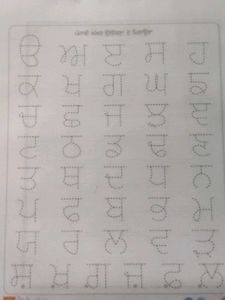 ਪੰਜਾਬੀ ਅੱਖਰ ਤੇ
ੳ ਅ ੲ ਸ ਹ
ਕ ਖ ਗ ਘ ਙ
ਚ ਛ ਜ ਝ ਞ
ਟ ਠ ਡ ਢ ਣ
ਤ ਥ ਦ ਧ ਨ
ਪ ਫ ਬ ਭ ਮ
ਯ ਰ ਲ ਵ ੜ
ਸ਼ ਖ਼ ਗ਼ ਜ਼ ਫ਼ ਲ਼